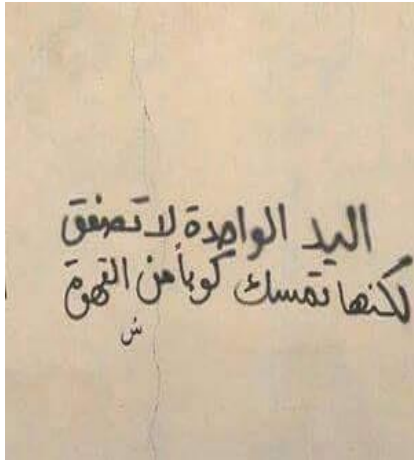 اليد الواحدة لا تصفق
لكنها تمسك كوباً من القهوة
ش